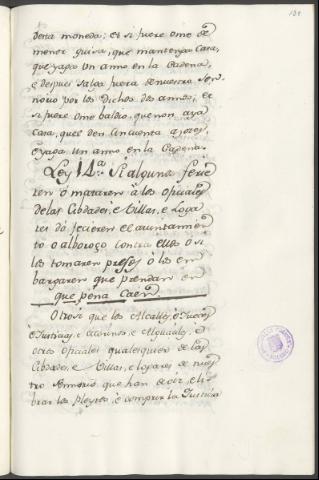 101
desta moneda; et si fuere ome de
menor guisa, que mantenga Casa,
que yaga un anno en la Cadena,
e despues salga fuera de nuestro Sen-
noxo por los dichos dos annos; et
si fuere ome baldio, que non aya
Casa, quel den Cinquenta azotes,
e yaga un anno en la Cadena.
Ley 14.ª Si algunos firie
ren ó mataren á los oficiales
de las Cibdades, e Villas, e Loga
res ó ficieren el ayuntamien
to o alboroço contra ellos o si
los tomaren presos, ó los em
bargaren que prendan en
que pena Caen.
Otrosi que los Alcalles, e Jueces
e Justicias, e Merinos, e Alguaciles, e
otros oficiales qualesquiera de las
Cibdades, e Villas, e logares de nues
tro Sennorio que han de oir, e li
brar los pleytos, e complir la Justicia